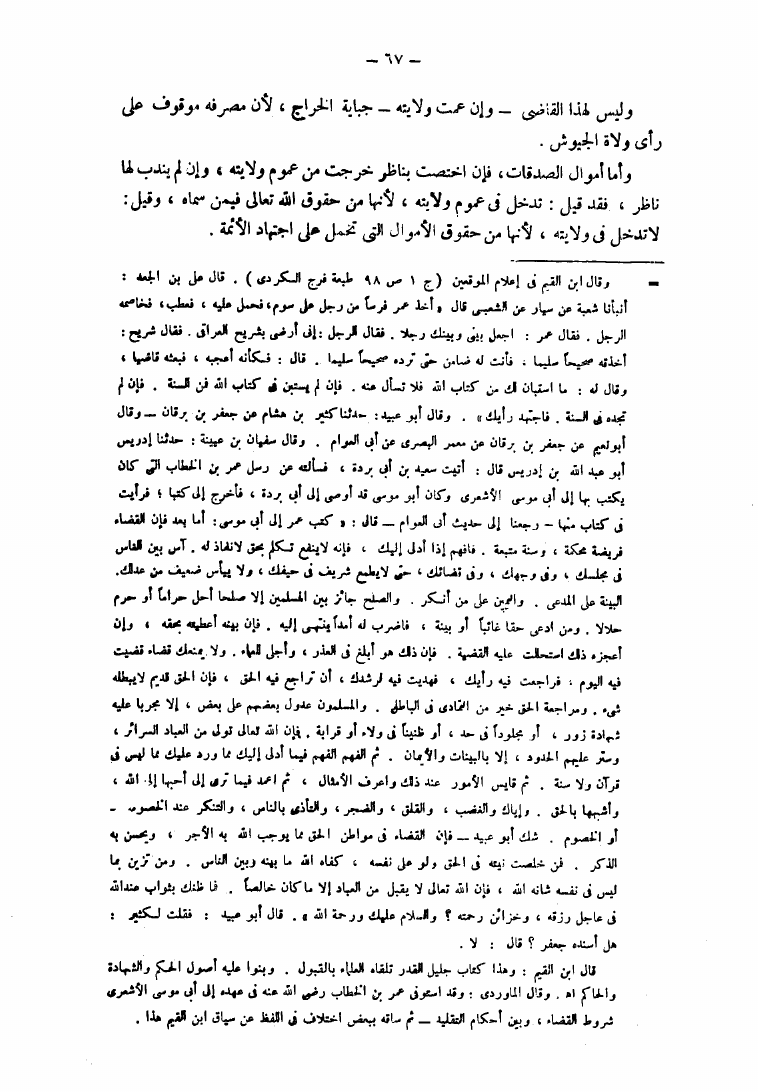 — ٦٧ —
وليس لهذا القاضى — وإن عمت ولايته — جباية الخراج ، لأن مصرفه موقوف على
رأى ولاة الجيوش .
وأما أموال الصدقات، فإن اختصت بناظر خرجت من عموم ولايته ، وإن لم يندب لها
ناظر ، فقد قيل : تدخل فى عموم ولايته ، لأنها من حقوق الله تعالى فيمن سماه ، وقيل :
لاتدخل فى ولايته ، لأنها من حقوق الأموال التى تحمل على اجتهاد الأئمة .
= وقال ابن القيم فى إعلام الموقعين (ج ١ ص ٩٨ طبعة فرج الكردى) . قال على بن الجعد :
أنبأنا شعبة عن سيار عن الشعبى قال «أخذ عمر فرساً من رجل على سوم، فحمل عليه ، فعطب، فخاصمه
الرجل . فقال عمر : اجعل بينى وبينك رجلا . فقال الرجل : إنى أرضى بشريح العراقى . فقال شريح :
أخذته صحيحاً سليما ، فأنت له ضامن حتى ترده صحيحاً سليما . قال : فكأنه أعجبه ، فبعثه قاضيا ،
وقال له : ما استبان لك من كتاب الله فلا تسأل عنه . فإن لم يستبن فى كتاب الله فمن السنة . فإن لم
تجده فى السنة . فاجتهد رأيك» . وقال أبو عبيد : حدثنا كثير بن هشام عن جعفر بن برقان — وقال
أبونعيم عن جعفر بن برقان عن معمر البصرى عن أبى العوام . وقال سفيان بن عيينة : حدثنا إدريس
أبو عبد الله بن إدريس قال : أتيت سعيد بن أبى بردة ، فسألته عن رسل عمر بن الخطاب التى كان
يكتب بها إلى أبى موسى الأشعرى وكان أبو موسى قد أوصى إلى أبى بردة ، فأخرج إلى كتبا ؛ فرأيت
فى كتاب منها – رجعنا إلى حديث أبى العوام — قال : « كتب عمر إلى أبى موسى : أما بعد فإن القضاء
فريضة محكمة ، وسنة متبعة . فافهم إذا أدلى إليك ، فإنه لاينفع تكلم بحق لانفاذ له . آس بين الناس
فى مجلسك ، وفى وجهك ، وفى قضائك ، حتى لايطمع شريف فى حيفك ، ولا ييأس ضعيف من عدلك.
البينة على المدعى . واليمين على من أنكر . والصلح جائز بين المسلمين إلا صلحا أحل حراماً أو حرم
حلالا . ومن ادعى حقا غائباً أو بينة ، فاضرب له أمداً ينتهى إليه . فإن بينه أعطيته بحقه ، وإن
أعجزه ذلك استحللت عليه القضية . فإن ذلك هو أبلغ فى العذر ، وأجلى للعماء. ولا يمنعك قضاء قضيت
فيه اليوم ، فراجعت فيه رأيك ، فهديت فيه لرشدك ، أن تراجع فيه الحق ، فإن الحق قديم لايبطله
شىء. ومراجعة الحق خير من التمادى فى الباطل . والمسلمون عدول بعضهم على بعض ، إلا مجربا عليه
شهادة زور ، أو مجلوداً فى حد ، أو ظنيناً فى ولاء أو قرابة . فإن الله تعالى تولى من العباد السرائر ،
وستر عليهم الحدود ، إلا بالبينات والأيمان . ثم الفهم الفهم فيما أدلى إليك مما ورد عليك مما ليس فى
قرآن ولا سنة . ثم قايس الأمور عند ذلك واعرف الأمثال ، ثم اعمد فيما ترى إلى أحبها إلى الله ،
وأشبهها بالحق . وإياك والغضب ، والقلق ، والضجر ، والتأذى بالناس ، والتنكر عند الخصومة –
أو الخصوم . شك أبو عبيد — فإن القضاء فى مواطن الحق مما يوجب الله به الأجر ، ويحسن به
الذكر . فمن خلصت نيته فى الحق ولو على نفسه ، كفاه الله ما بينه وبين الناس . ومن تزين بما
ليس فى نفسه شانه الله ، فإن الله تعالى لا يقبل من العباد إلا ماكان خالصاً . فما ظنك بثواب عندالله
فى عاجل رزقه ، وخزائن رحمته ؟ والسلام عليك ورحمة الله » . قال أبو عبيد : فقلت لكثير :
هل أسنده جعفر ؟ قال : لا .
قال ابن القيم : وهذا كتاب جليل القدر تلقاه العلماء بالقبول . وبنوا عليه أصول الحكم والشهادة
والحاكم اه . وقال الماوردى : وقد استوفى عمر بن الخطاب رضى الله عنه فى عهده إلى أبى موسى الأشعرى
شروط القضاء ، وبين أحكام التقليد — ثم ساقه ببعض اختلاف فى اللفظ عن سياق ابن القيم هذا .